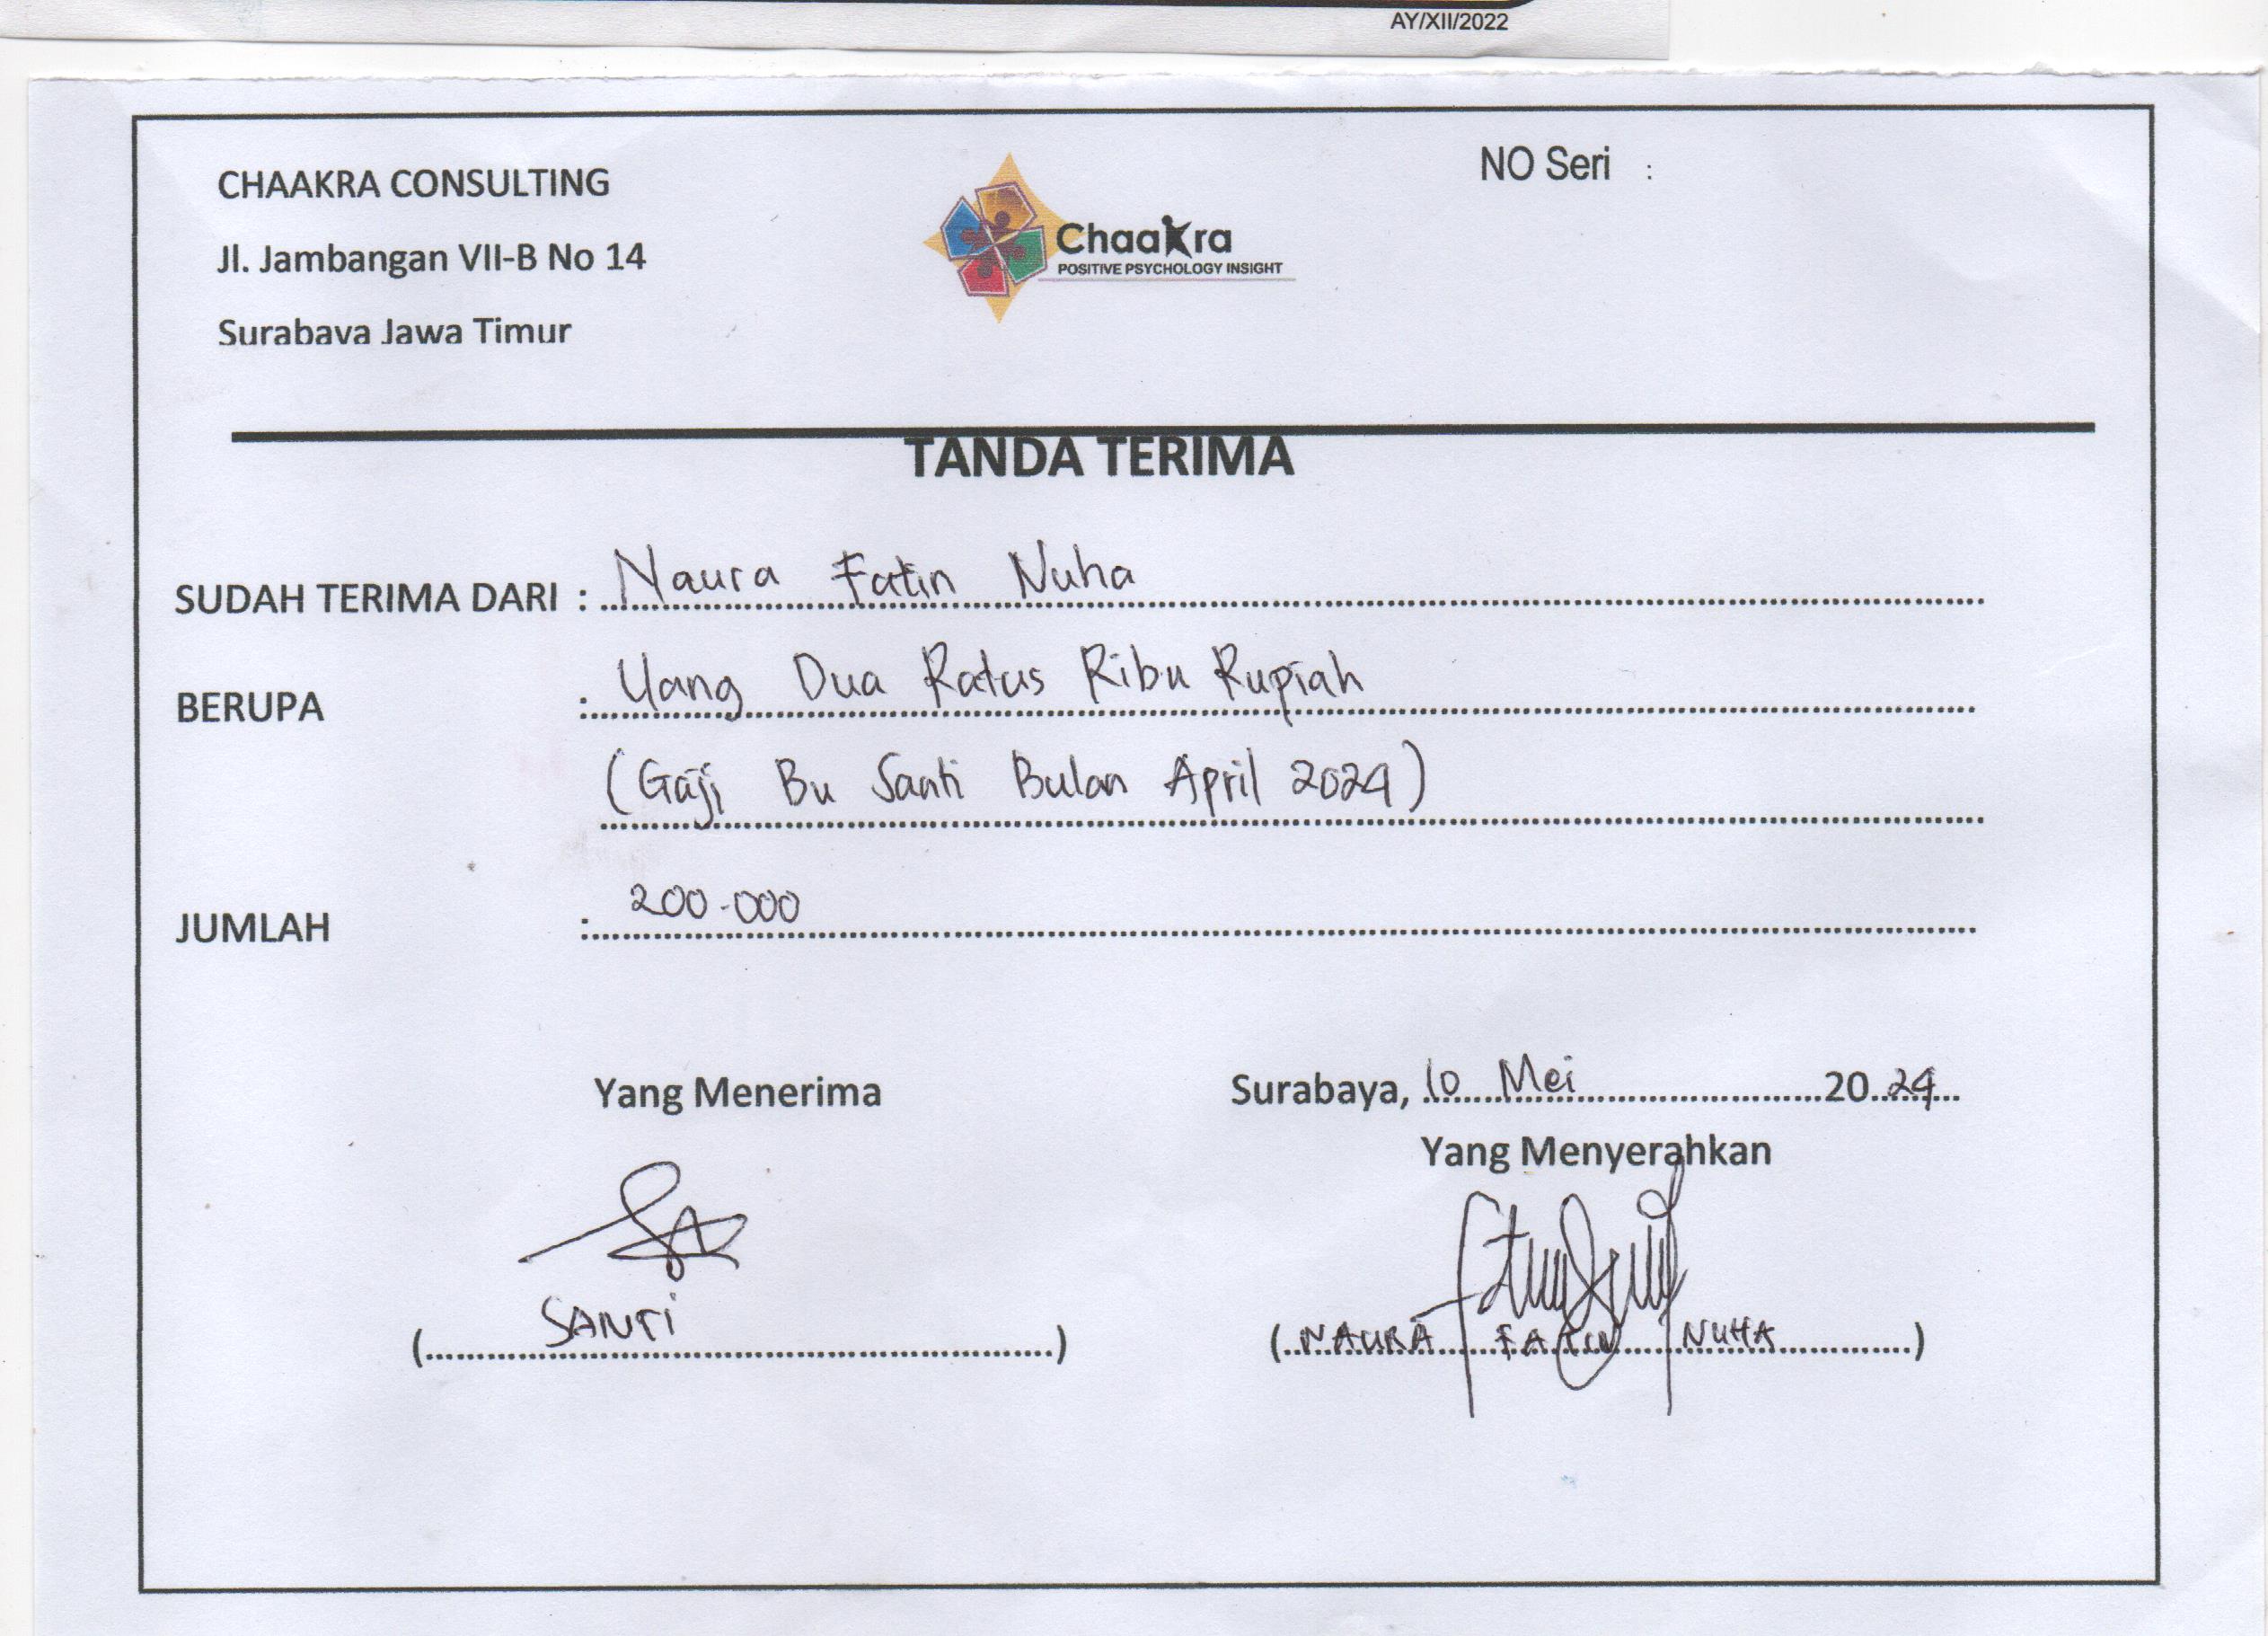 AY/XII/2022
CHAAKRA CONSULTING
Jl. Jambangan VII-B No 14
Surabaya Jawa Timur
Chaakra
POSITIVE PSYCHOLOGY INSIGHT
NO Seri :
TANDA TERIMA
SUDAH TERIMA DARI : Naura Fatin Nuha
BERUPA : Uang Dua Ratus Ribu Rupiah
(Gaji Bu Santi Bulan April 2024)
JUMLAH : 200.000
Yang Menerima
SANTI
(....................)
Surabaya, 10 Mei 2024
Yang Menyerahkan
(NAURA FATIN NUHA)